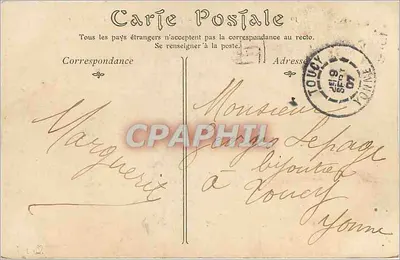 Carte Postale
Tous les pays étrangers n'acceptent pas la correspondance au recto.
Se renseigner à la poste.
Correspondance
Adresse
TOUCY
YONNE
9
SEPT
07
Marguerite
Monsieur
Georges Lepage
bijoutier
à Toucy
Yonne
CPAPHIL